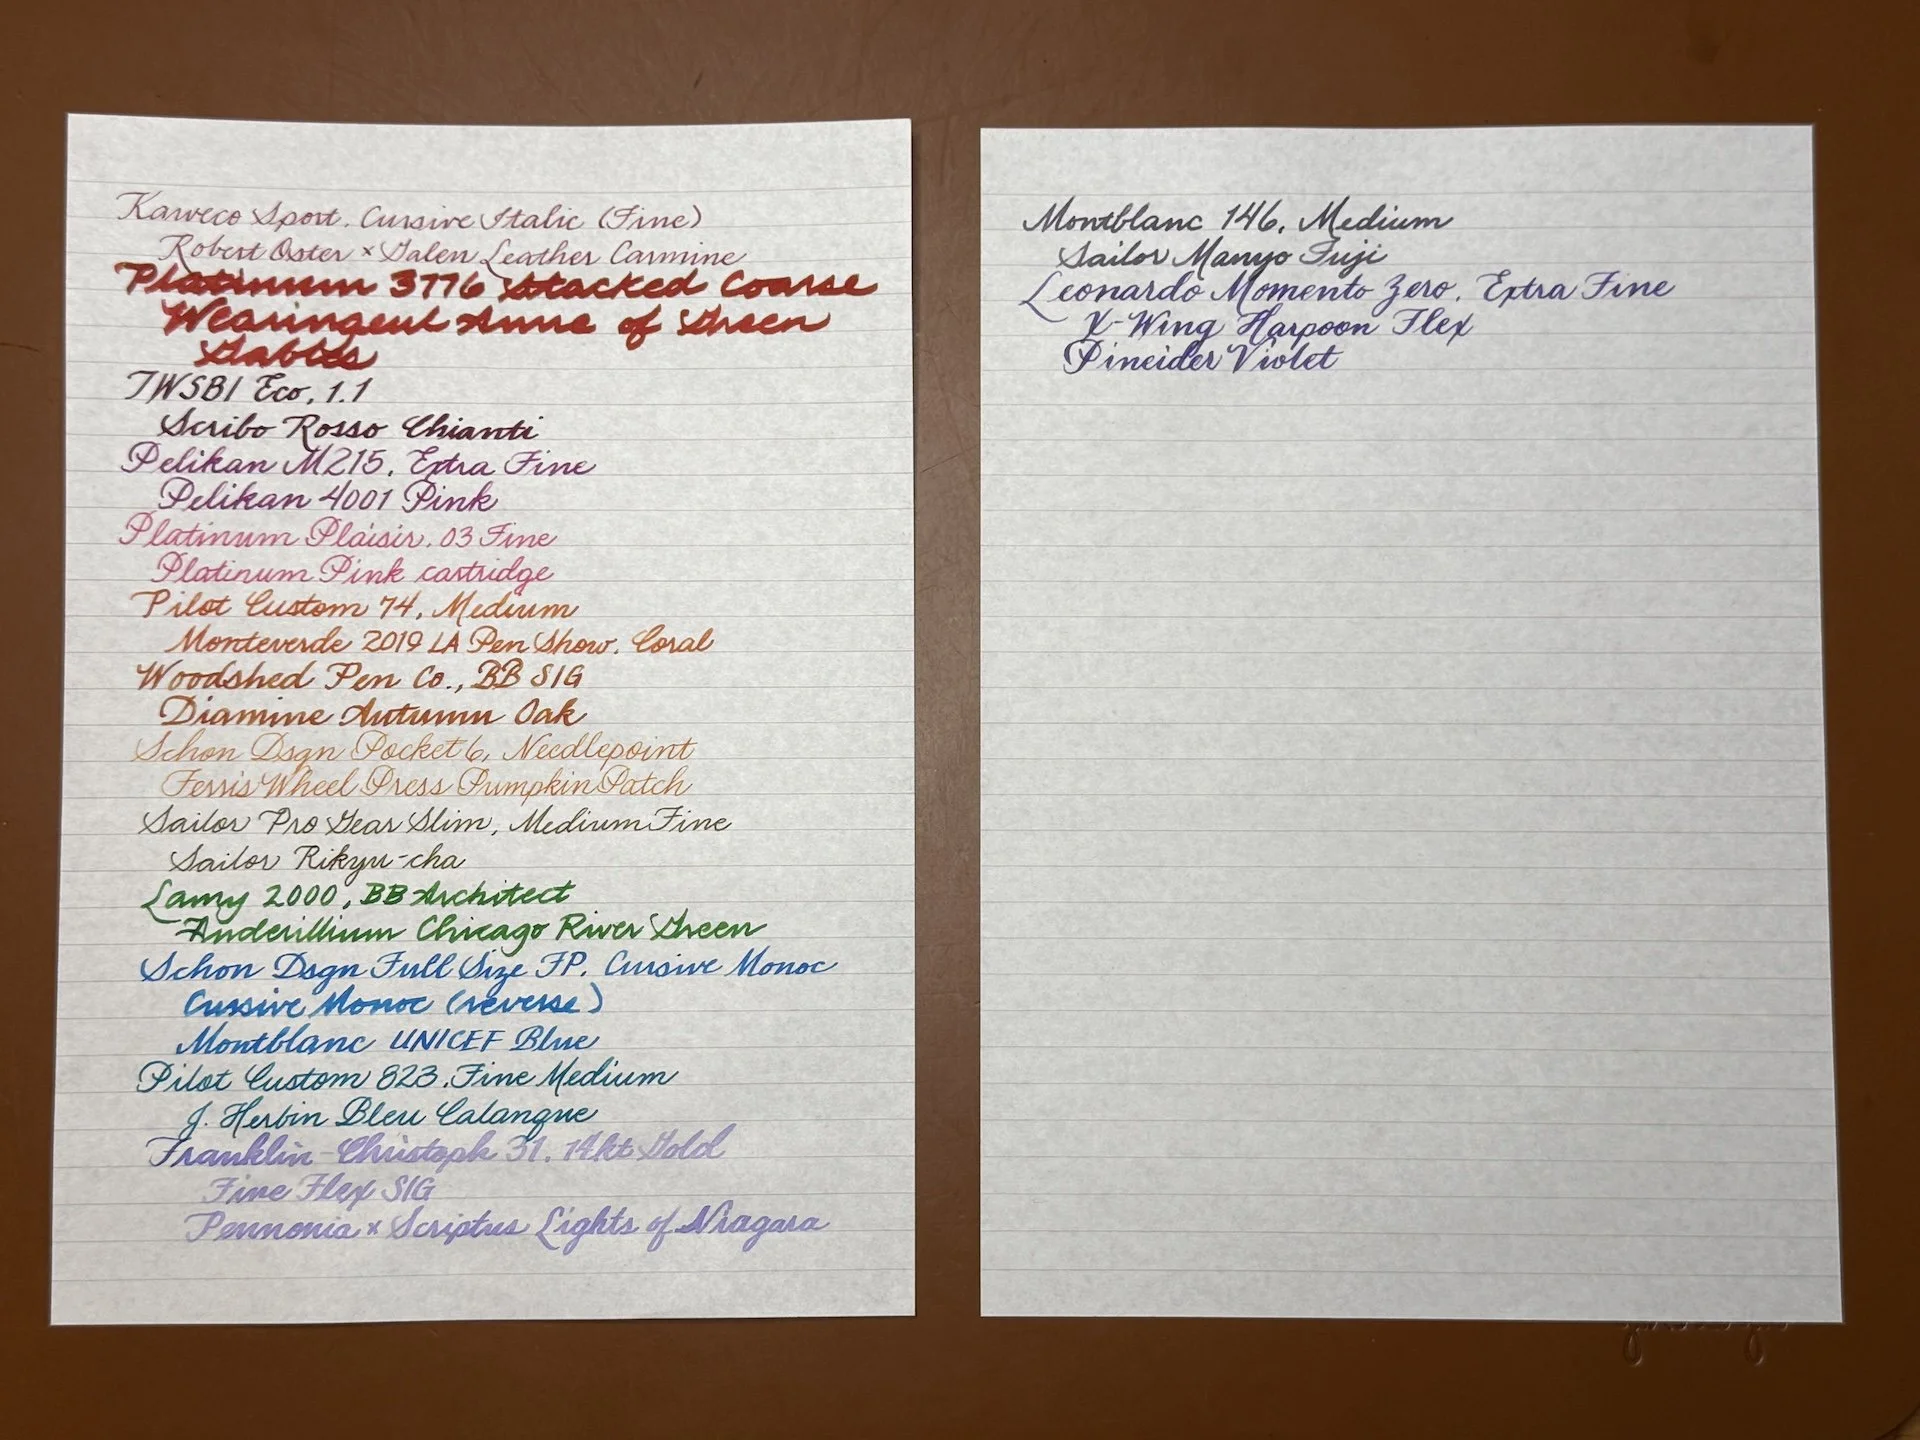 Kaweco Sport. Cursive Italic (Fine)
Robert Oster × Galen Leather Carmine
Platinum 3776 Stacked Coarse
Wearingeul Anne of Green
Gables
TWSBI Eco, 1.1
Scribo Rosso Chianti
Pelikan M215, Extra Fine
Pelikan 4001 Pink
Platinum Plaisir, 03 Fine
Platinum Pink cartridge
Pilot Custom 74, Medium
Monteverde 2019 LA Pen Show, Coral
Woodshed Pen Co., BB SIG
Diamine Autumn Oak
Schon Dsgn Pocket 6, Needlepoint
Ferris Wheel Press Pumpkin Patch
Sailor Pro Gear Slim, Medium Fine
Sailor Rikyu-cha
Lamy 2000, BB Architect
Anderillium Chicago River Green
Schon Dsgn Full Size FP, Cursive Monoc
Cursive Monoc (reverse)
Montblanc UNICEF Blue
Pilot Custom 823, Fine Medium
J. Herbin Bleu Calanque
Franklin-Christoph 31, 14kt Gold
Fine Flex SIG
Pennonia × Scriptus Lights of Niagara
Montblanc 146, Medium
Sailor Manyo Fuji
Leonardo Momento Zero, Extra Fine
X-Wing Harpoon Flex
Pineider Violet